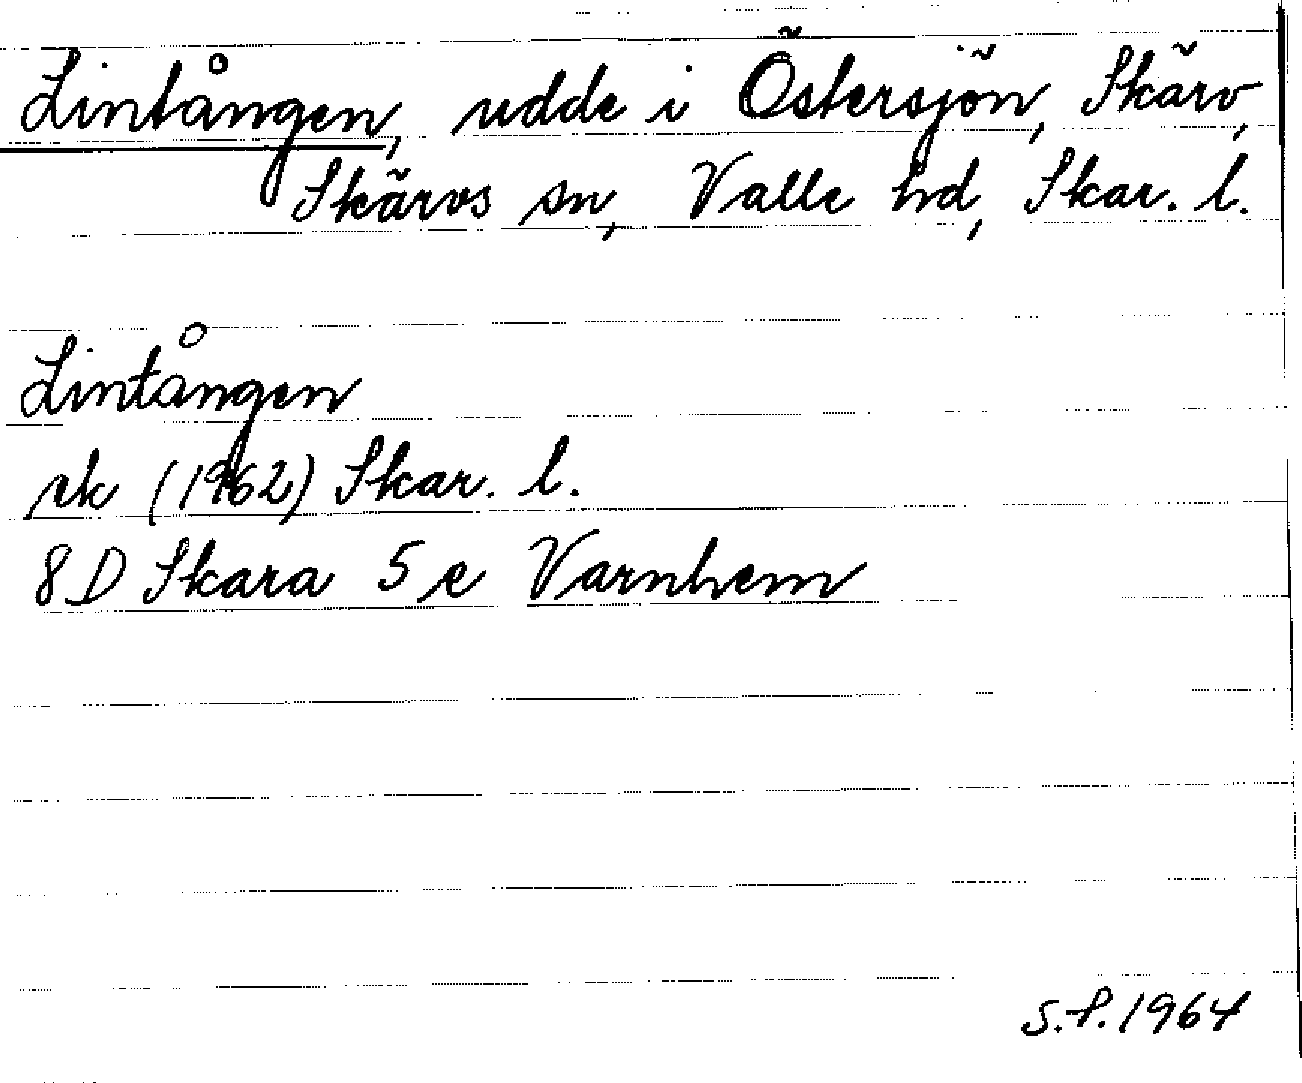 Lintången, udde i Östersjön, Skärv,
Skärvs sn, Valle hd, Skar. l.
Lintången
rk (1962) Skar. l.
8D Skara 5e Varnhem
S.P. 1964